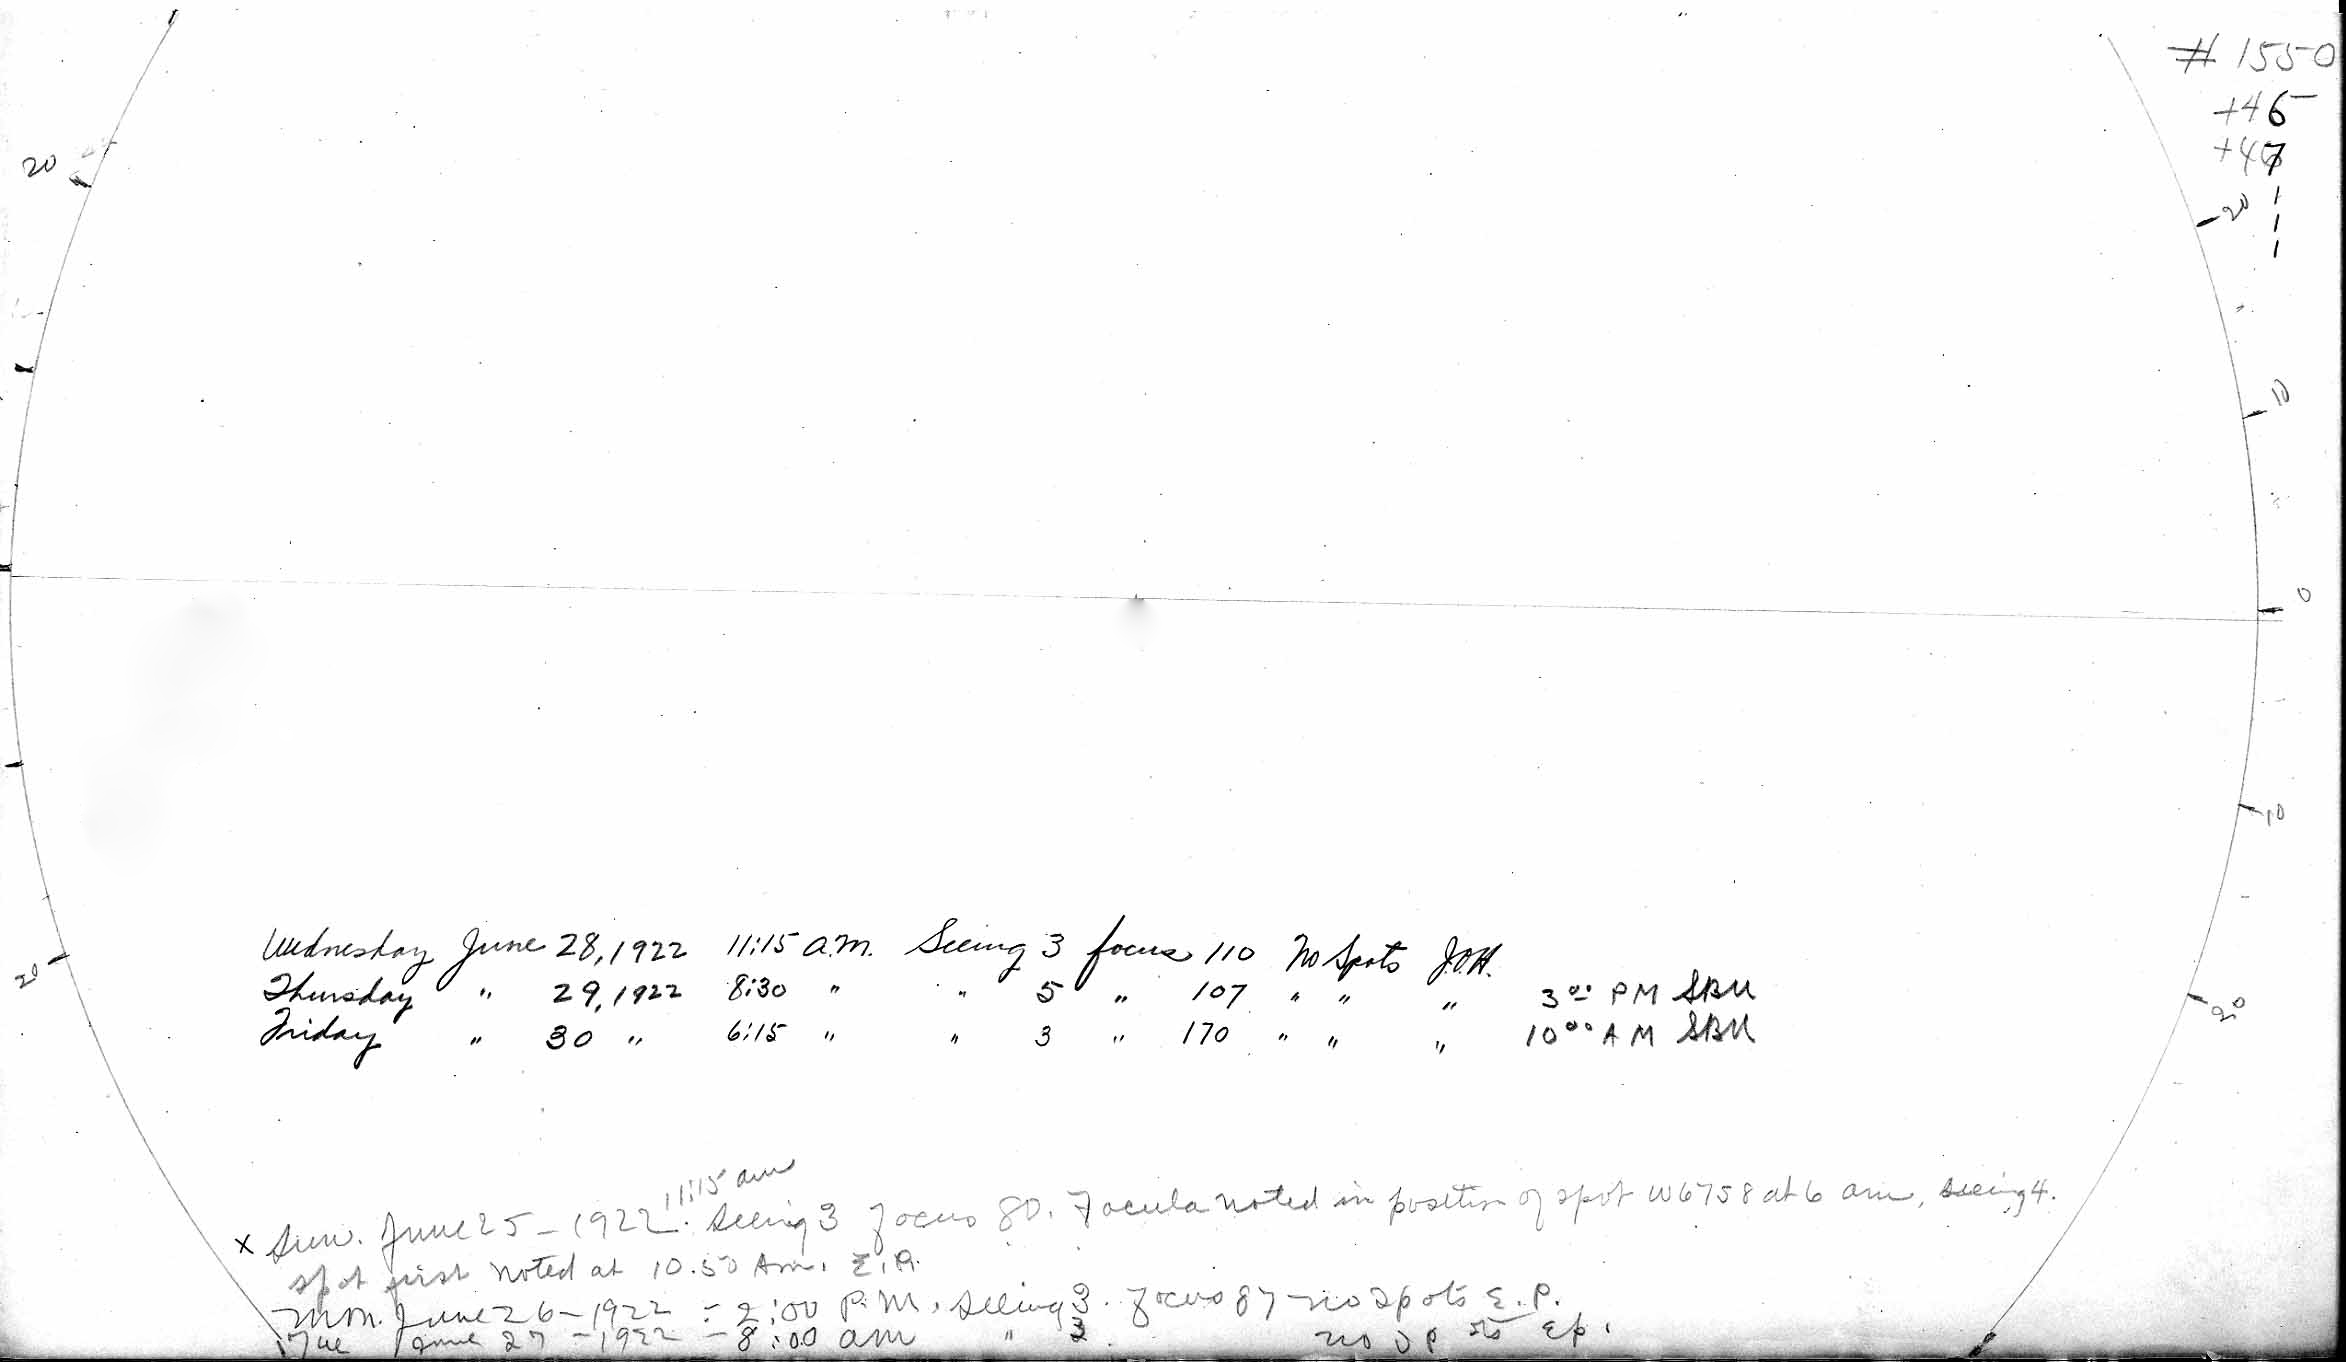 # 1550
+46
+47
20
20
10
0
10
20
20
Wednesday June 28, 1922 11:15 a.m. Seeing 3 focus 110 No Spots J.O.H.
Thursday " 29, 1922 8:30 " " 5 " 107 " " " 3 00 PM SBN
Friday " 30 " 6:15 " " 3 " 170 " " " 10 00 AM SBN
11:15 am
x Sun. June 25 - 1922. Seeing 3 focus 80. Facula noted in position of spot W6758 at 6 am, seeing 4.
spot first noted at 10.50 Am. E.P.
Mon. June 26 - 1922 - 2:00 P.M. Seeing 3. focus 87 no spots E.P.
Tue June 27 - 1922 - 8:00 am " 3 no spots Ep.